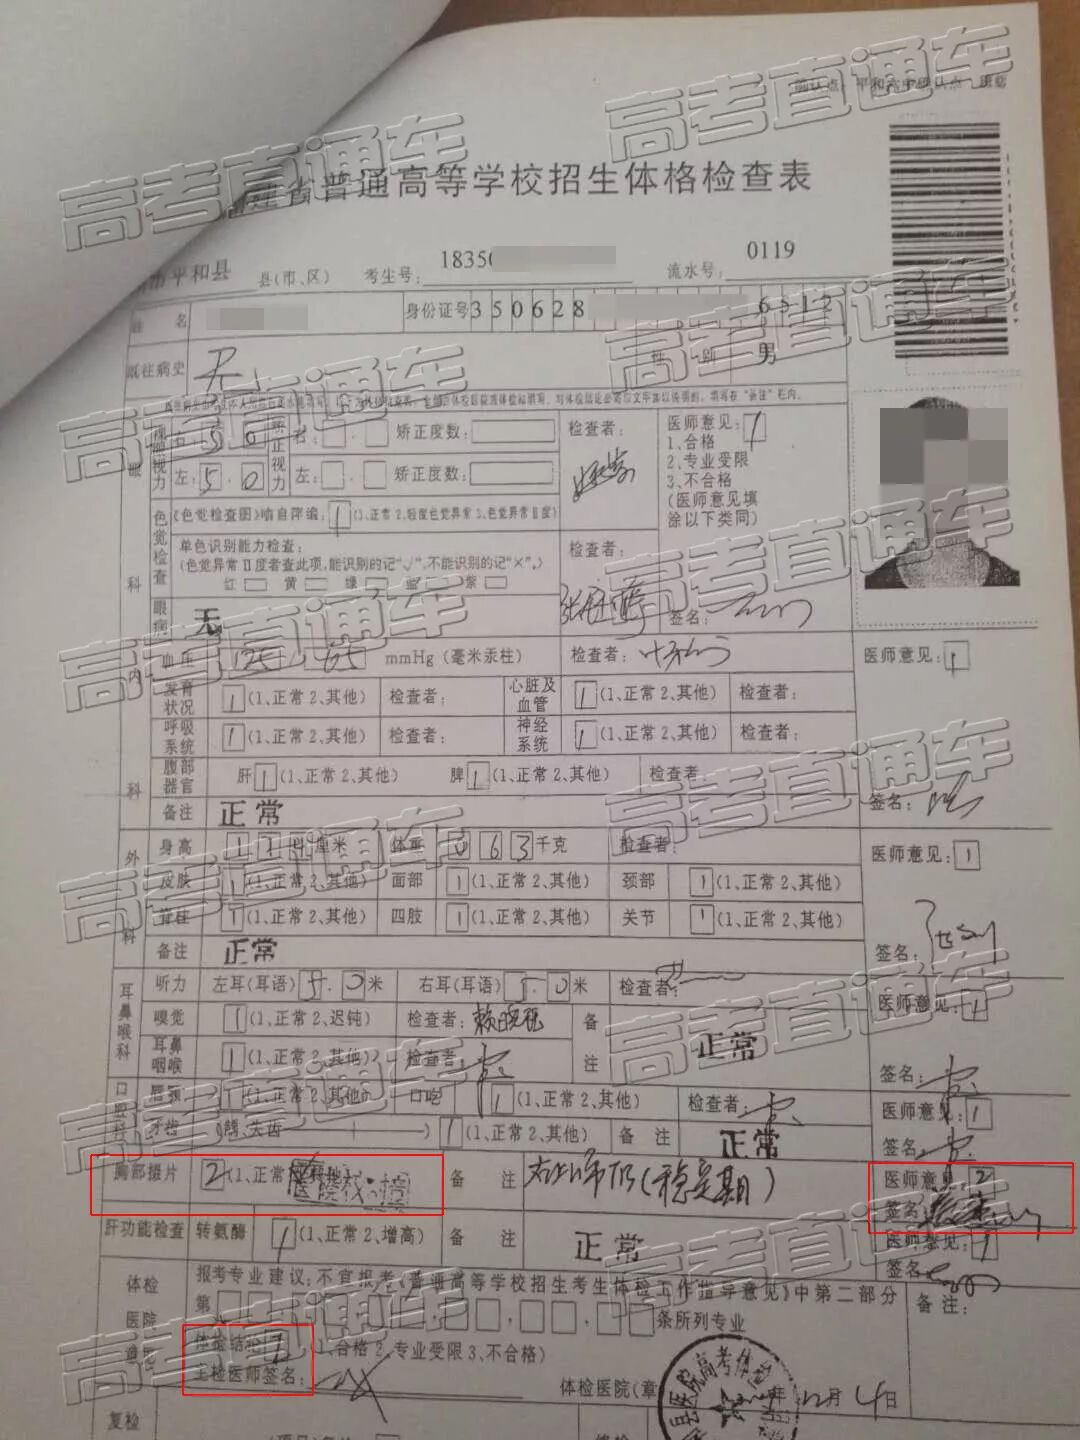 确认点：平和
建省普通高等学校招生体格检查表
市平和县 县(市、区) 考生号： 1835 流水号： 0119
姓 名 身份证号 350628 6512
既往病史 无 性 别 男
右： 5.0 右： 矫正度数： 检查者： 医师意见： 1
左： 5.0 左： 矫正度数： 1、合格
2、专业受限
3、不合格
(医师意见填
涂以下类同)
眼 裸眼视力 矫正视力
色觉检查 1 (1、正常 2、轻度色觉异常 3、色觉异常Ⅱ度)
单色识别能力检查： 检查者：
(色觉异常Ⅱ度者查此项，能识别的记“√”，不能识别的记“×”。)
红 黄 绿 蓝 紫
科 眼病 无 签名：
内 血压 125 65 mmHg (毫米汞柱) 检查者： 医师意见： 1
发育状况 1 (1、正常 2、其他) 检查者： 心脏及血管 1 (1、正常 2、其他) 检查者：
呼吸系统 1 (1、正常 2、其他) 检查者： 神经系统 1 (1、正常 2、其他) 检查者：
腹部器官 肝 1 (1、正常 2、其他) 脾 1 (1、正常 2、其他) 检查者：
科 备注 正常 签名：
外 身高 174 厘米 体重 063 千克 检查者： 医师意见： 1
皮肤 1 (1、正常 2、其他) 面部 1 (1、正常 2、其他) 颈部 1 (1、正常 2、其他)
脊柱 1 (1、正常 2、其他) 四肢 1 (1、正常 2、其他) 关节 1 (1、正常 2、其他)
科 备注 正常 签名：
耳鼻喉科 听力 左耳(耳语) 5.0 米 右耳(耳语) 5.0 米 检查者： 医师意见： 1
嗅觉 1 (1、正常 2、迟钝) 检查者： 备注 正常
耳鼻咽喉 1 (1、正常 2、其他) 检查者： 签名：
口腔科 唇腭 1 (1、正常 2、其他) 口吃 1 (1、正常 2、其他) 检查者： 医师意见： 1
牙齿 (龋、缺齿 ) 1 (1、正常 2、其他) 备 注 正常 签名：
胸部摄片 2 (1、正常 2、其他) 备 注 (稳定期) 医师意见： 2
签名：
肝功能检查 转氨酶 1 (1、正常 2、增高) 备 注 正常 医师意见： 1
签名：
体检医院意见 报考专业建议：不宜报考《普通高等学校招生考生体检工作指导意见》中第二部分 备注：
第 、 条所列专业
体检结论 2 (1、合格 2、专业受限 3、不合格)
主检医师签名： 体检医院(章) 年 12 月 4 日
县医院高考体检
复检
高考直通车
高考直通车
高考直通车
高考直通车
高考直通车
高考直通车
高考直通车
高考直通车
高考直通车
高考直通车
高考直通车
高考直通车